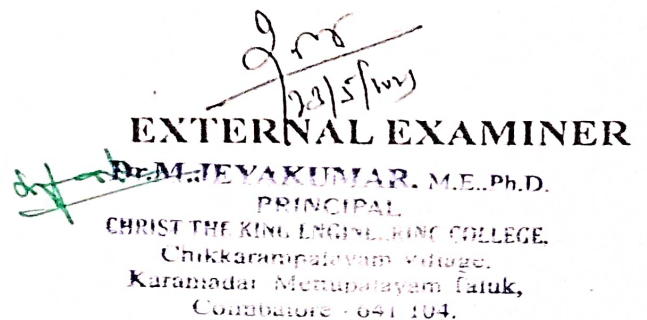 EXTERNAL EXAMINER
Dr.M.JEYAKUMAR. M.E.,Ph.D.
PRINCIPAL
CHRIST THE KING ENGINEERING COLLEGE.
Chikkarampalayam Village,
Karamadai Mettupalayam Taluk,
Coimbatore - 641 104.